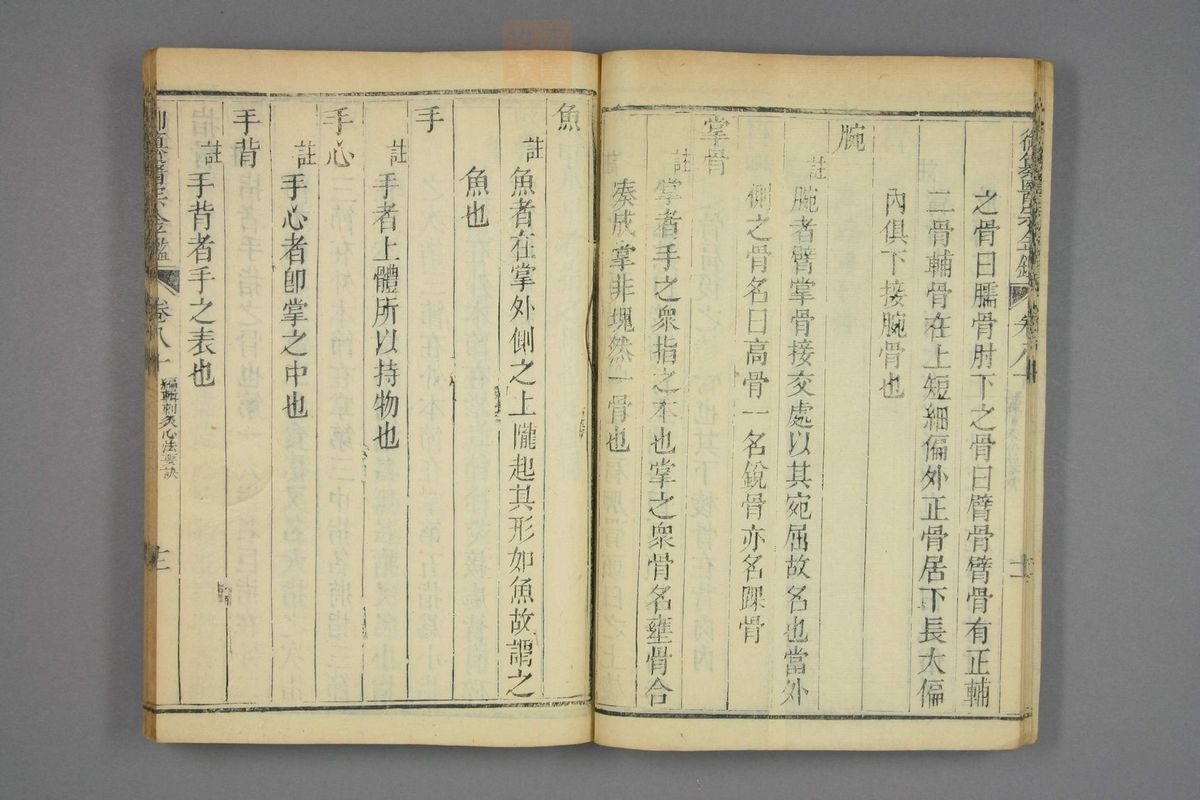 御纂醫宗金鑑 卷八十
之骨曰臑骨肘下之骨曰臂骨臂骨有正輔
二骨輔骨在上短細偏外正骨居下長大偏
內俱下接腕骨也
腕
註 腕者臂掌骨接交處以其宛屈故名也當外
側之骨名曰高骨一名銳骨亦名踝骨
掌骨
註 掌者手之衆指之本也掌之衆骨名壅骨合
湊成掌非塊然一骨也
魚
註 魚者在掌外側之上隴起其形如魚故謂之
魚也
手
註 手者上體所以持物也
手心
註 手心者卽掌之中也
手背
註 手背者手之表也
醫宗金鑑 卷八十 編輯刺灸心法要訣